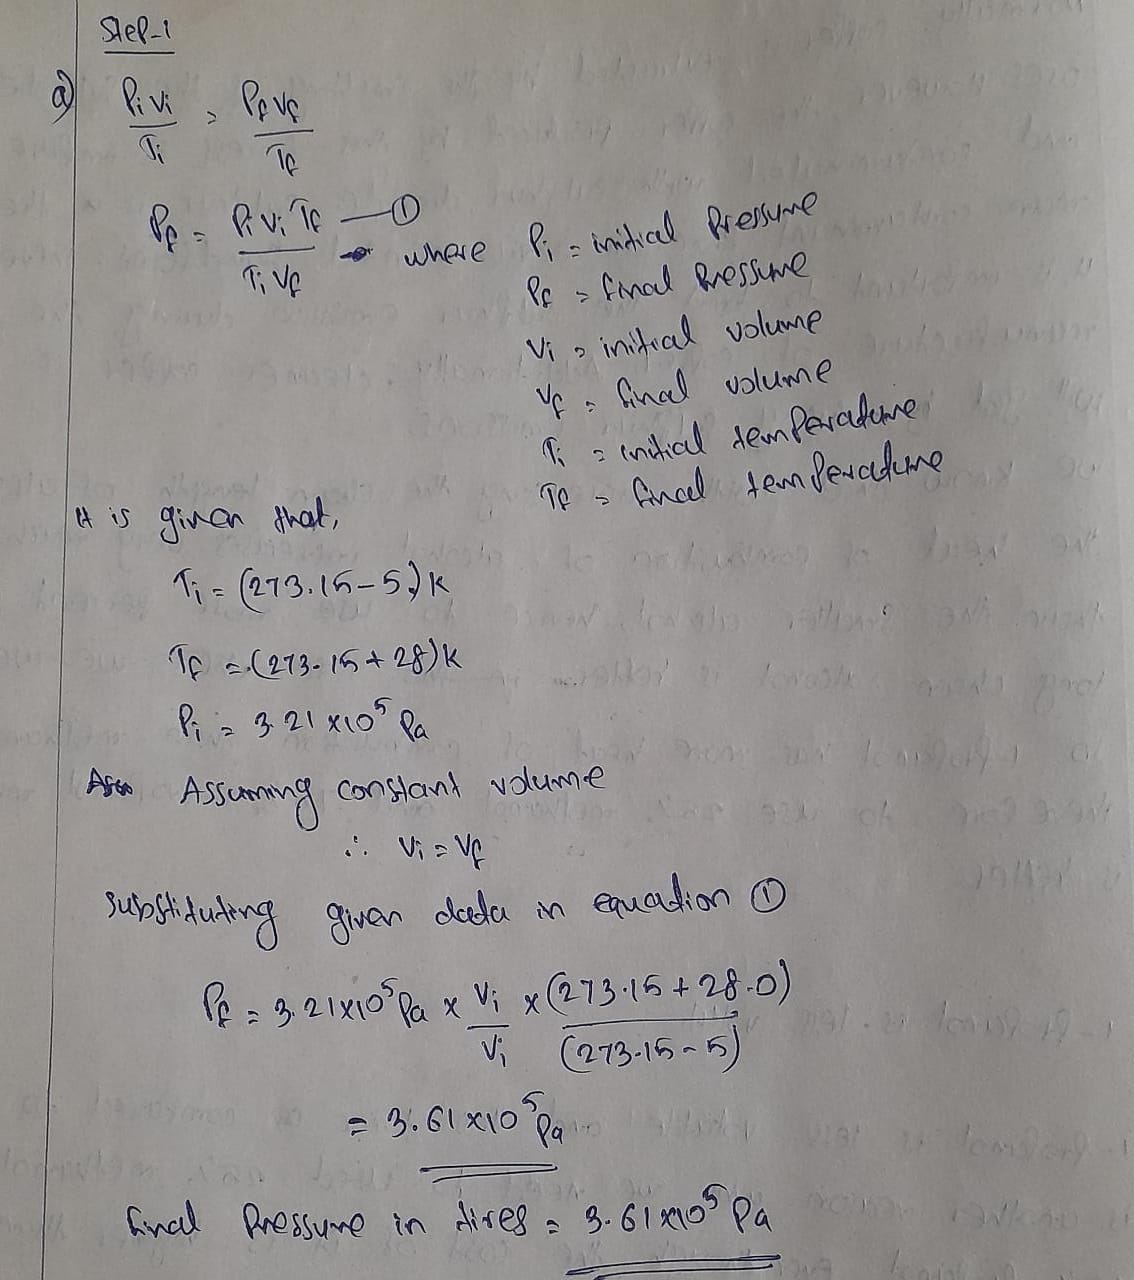 Step-1
a) PiVi/Ti = PfVf/Tf
Pf = PiViTf/TiVf —①
where Pi = initial Pressure
Pf = final Pressure
Vi = initial volume
Vf = final volume
Ti = initial temperature
Tf = final temperature
It is given that,
Ti = (273.15-5)K
Tf = (273.15+28)K
Pi = 3.21×10⁵ Pa
Assuming constant volume
∴ Vi = Vf
substituting given data in equation ①
Pf = 3.21×10⁵ Pa × Vi/Vi × (273.15+28.0)/(273.15-5)
= 3.61×10⁵ Pa
final Pressure in tires = 3.61×10⁵ Pa